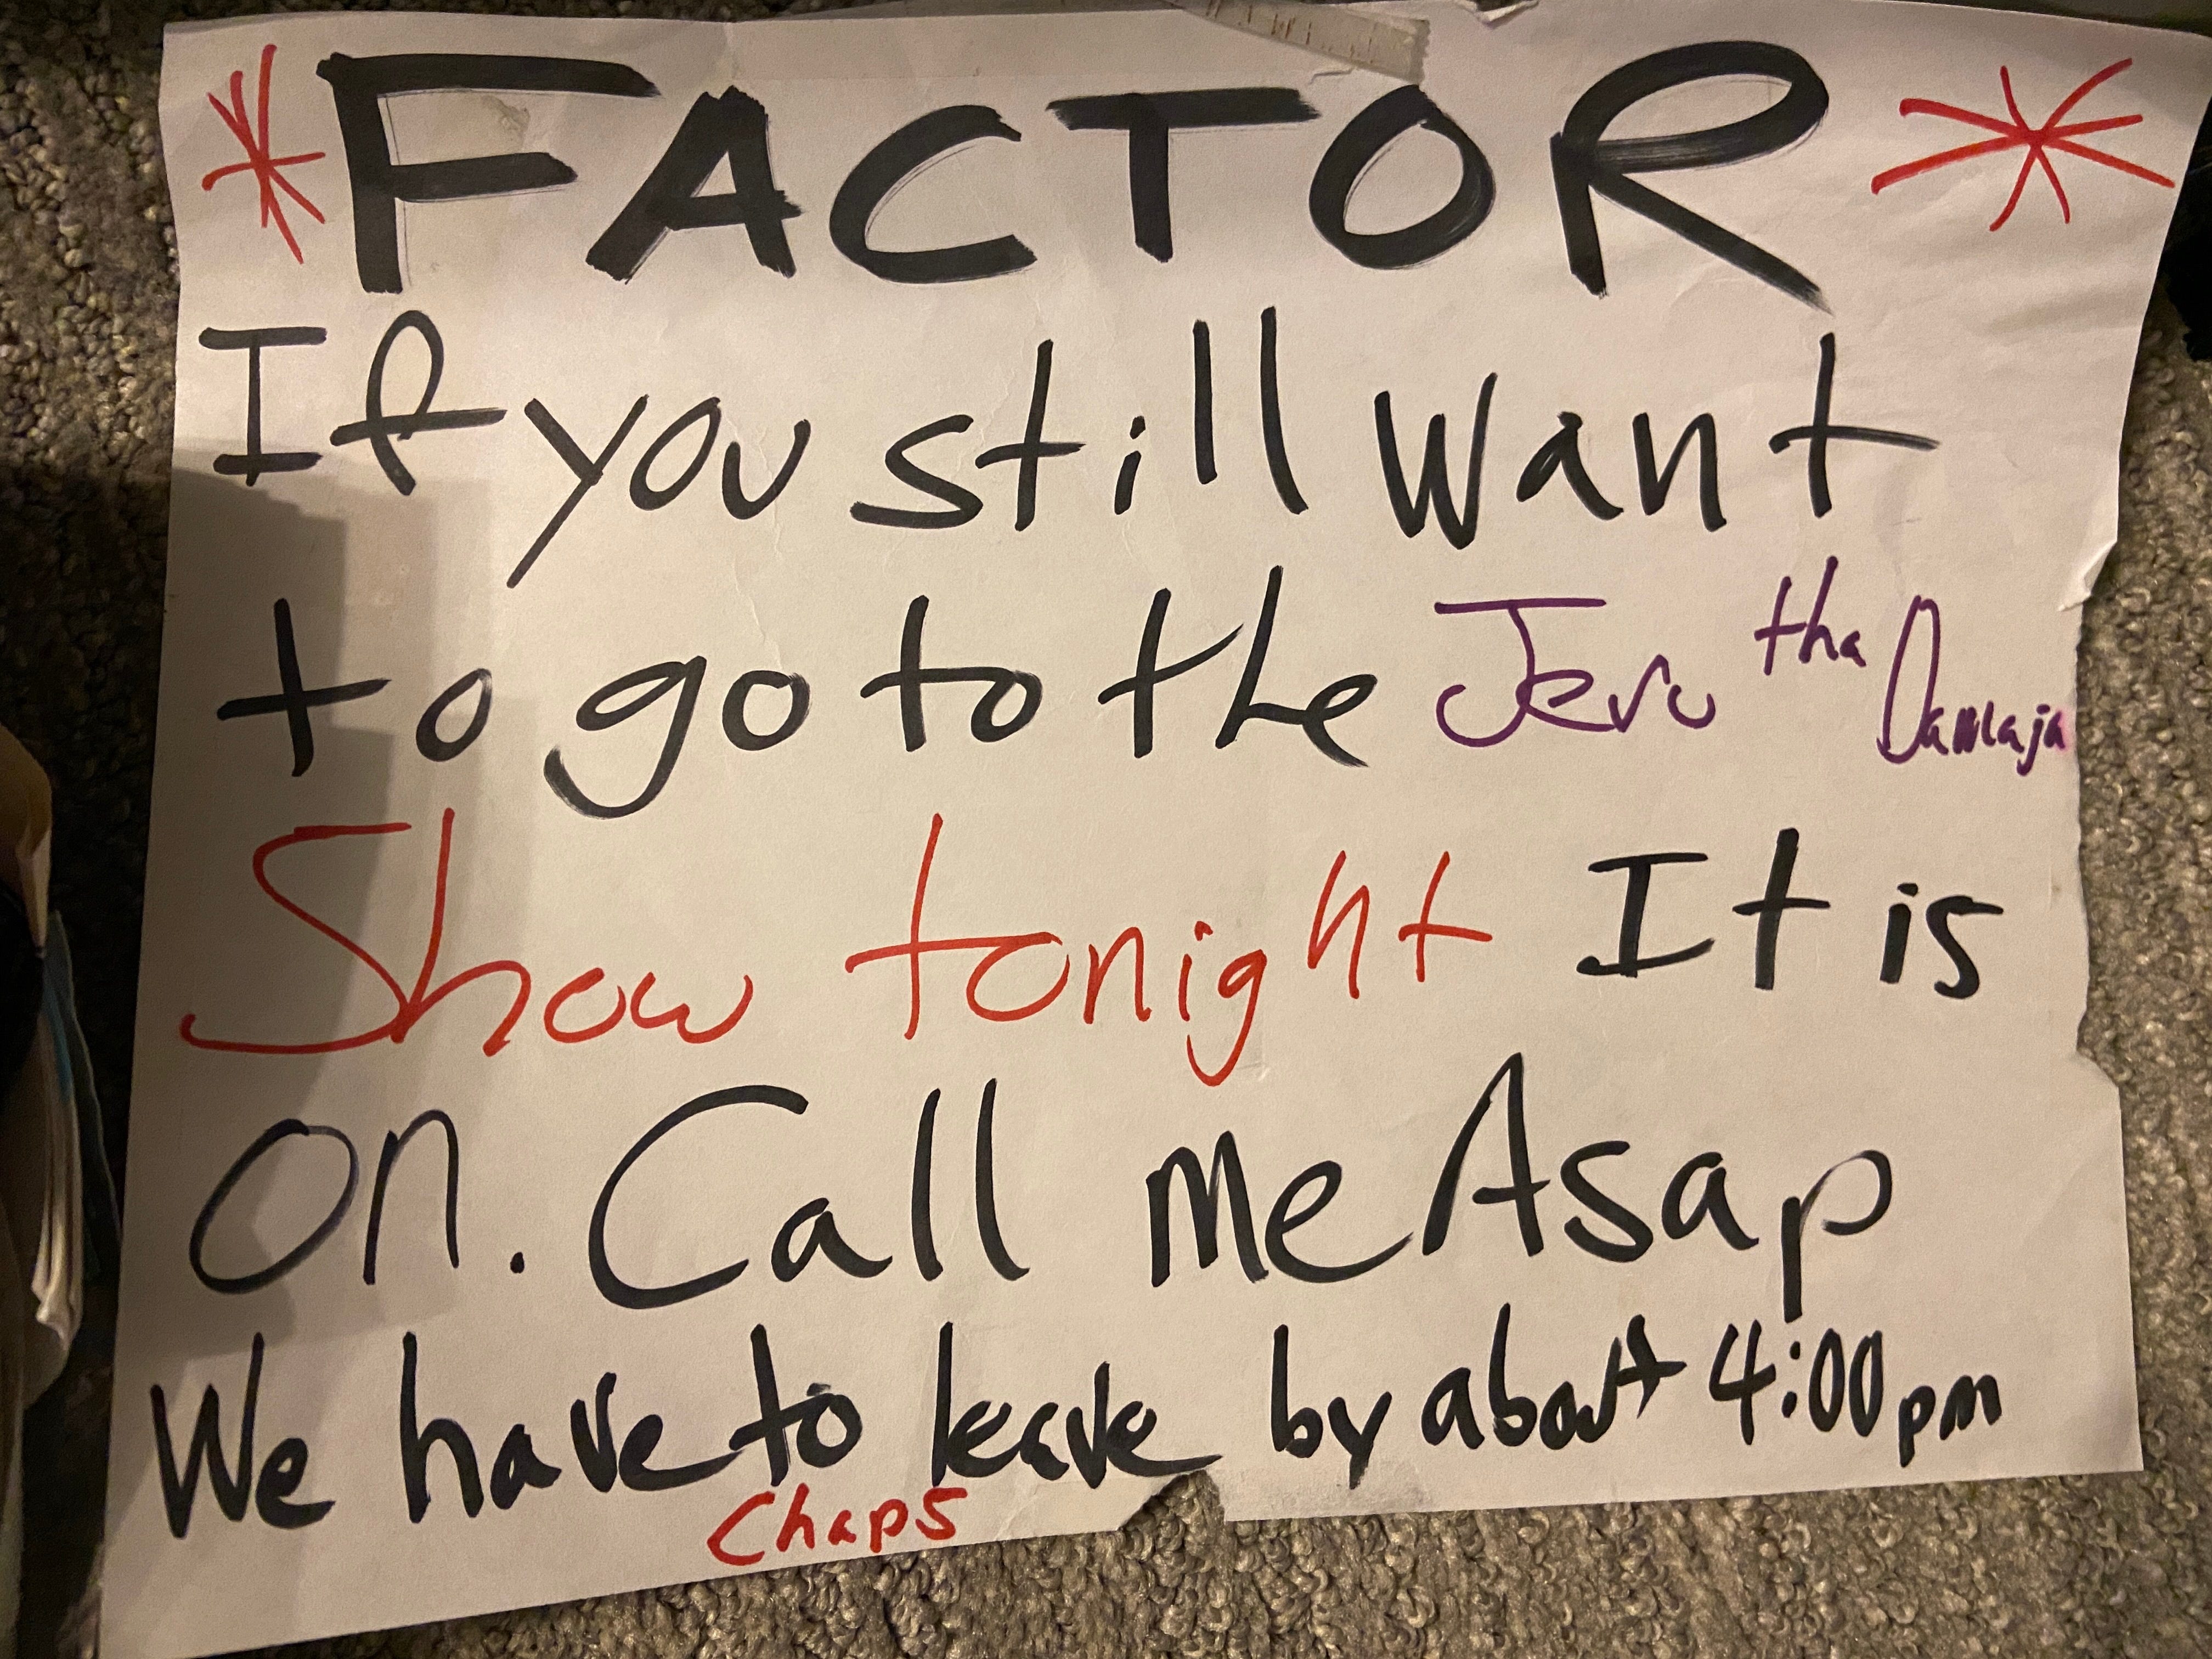 * FACTOR *
If you still want
to go to the Jeru tha Damaja
Show tonight It is
on. Call me Asap
We have to leave by about 4:00pm
Chaps